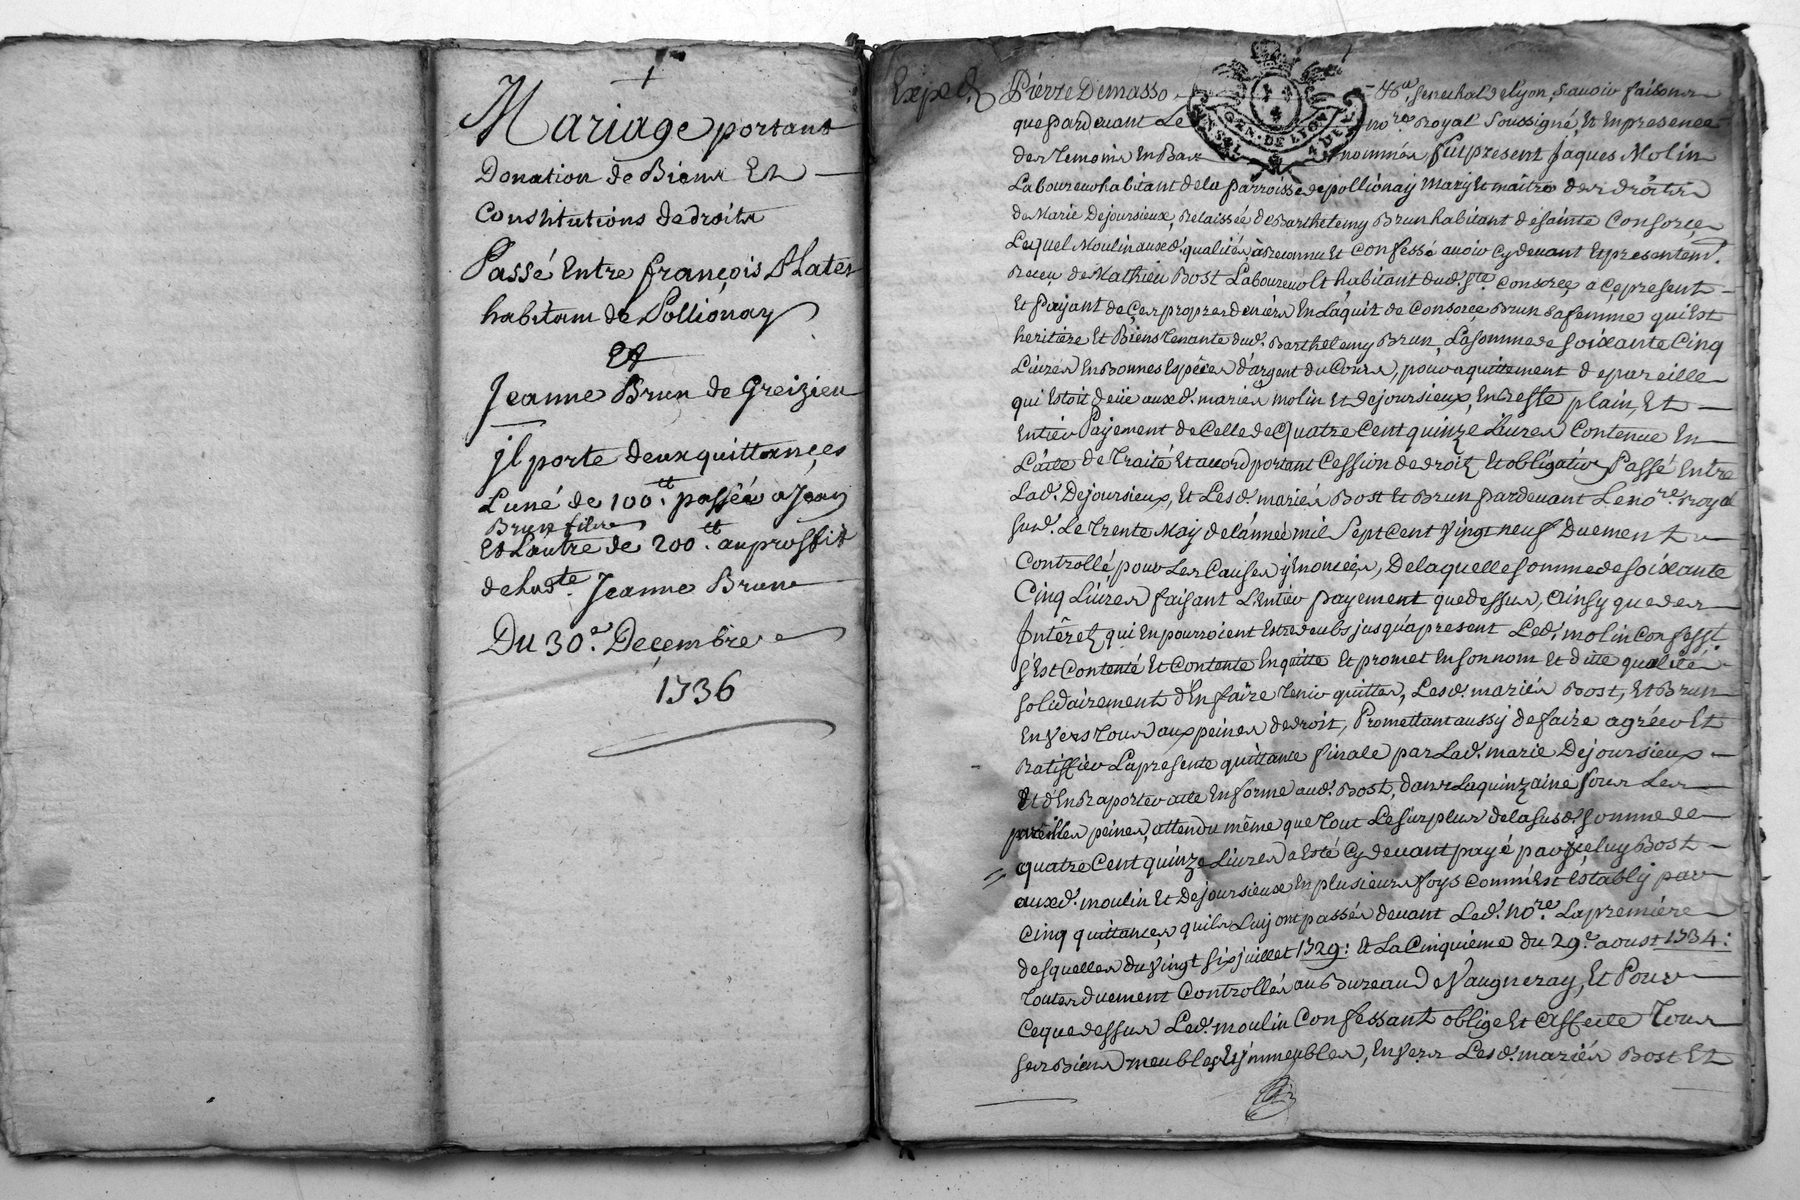 Mariage portant
Donation de Biens Et
Constitutions de droits
Passé Entre françois Plater
habitant de Pollionay
Et
Jeanne Brun de Greizieu
jl porte deux quittançes
L'uné de 100tt. passée a Jean
Brun filie
Et L'autre de 200tt. au proffit
de lad.te Jeanne Brun
Du 30.e Deçembre
1736
Exped.
Pierre Demasso Sénéchal de lyon, sçavoir faisons
que Pardevant Le no.re Royal Soussigné, Et En presence
des Temoins En Bas nommés, fut present Jaques Molin
Laboureur habitant de la parroisse de pollionay Mary Et maître des droits
de Marie Dejoursieux, Relaissée de Barthelemy Brun habitant de sainte Consorce
Lequel Moulin auxd. qualités, à Reconnu Et Confessé avoir Cy devant Et presentem.t
Reçeu de Mathieu Bost Laboureur habitant dud. S.te Consorce a ce present
Et Payant de Ces propres deniers En L'aquit de Consorce Brun sa femme qui Est
heritiere Et Biens Tenante dud. Barthelemy Brun, La somme de soixante Cinq
Livres En Bonnes Espèces d'argent du Cours, pour aquittement de pareille
qui Estoit deüe auxd. mariés molin Et dejoursieux, En Reste plain, Et
Entier Payement de Celle de Quatre Cent quinze Livres Contenue En
L'acte de Traité Et accord portant Cession de droitz Et obligation Passé Entre
Lad. Dejoursieux, Et Lesd. mariés Bost Et Brun pardevant Le no.re Royal
susd. Le Trente May de L'année mil Sept Cent Vingt neuf Duement
Controllé, pour Les Causes y Enoncées, De laquelle somme de soixante
Cinq Livres faisant L'Entier payement que dessus, Ainsy que des
Jntêretz qui En pourroient Estre deubs jusqu'a present Led. molin Confess.t
s'Est Contenté Et Contente En quitte Et promet En son nom Et ditte qualité
solidairement d'En faire Tenir quittes, Lesd. mariés Bost, Et Brun
Envers Tous aux peines de droit, Promettant aussy de faire agréer Et
Ratiffier La presente quittance finale par Lad. marie Dejoursieux
Et d'En Raporter acte En forme aud. Bost, dans La quinzaine sous Les
pareilles peines, attendu même que Tout Le surplus de la susd. somme de
quatre Cent quinze Livres a Esté Cy devant payé par iceluy Bost
auxd. moulin Et Dejoursieux En plusieurs foys Comme Est Estably par
Cinq quittances quils Luy ont passés devant Led. no.re La premiére
desquelles du Vingt six juillet 1729: Et La Cinquième du 29.e aoust 1734:
Toutes duement Controllés au Bureau de Vaugneray, Et Pour
Ce que dessus Led. moulin Confessant oblige Et affecte Tous
ses Biens meubles Et jmmeubles, Envers Lesd. mariés Bost Et